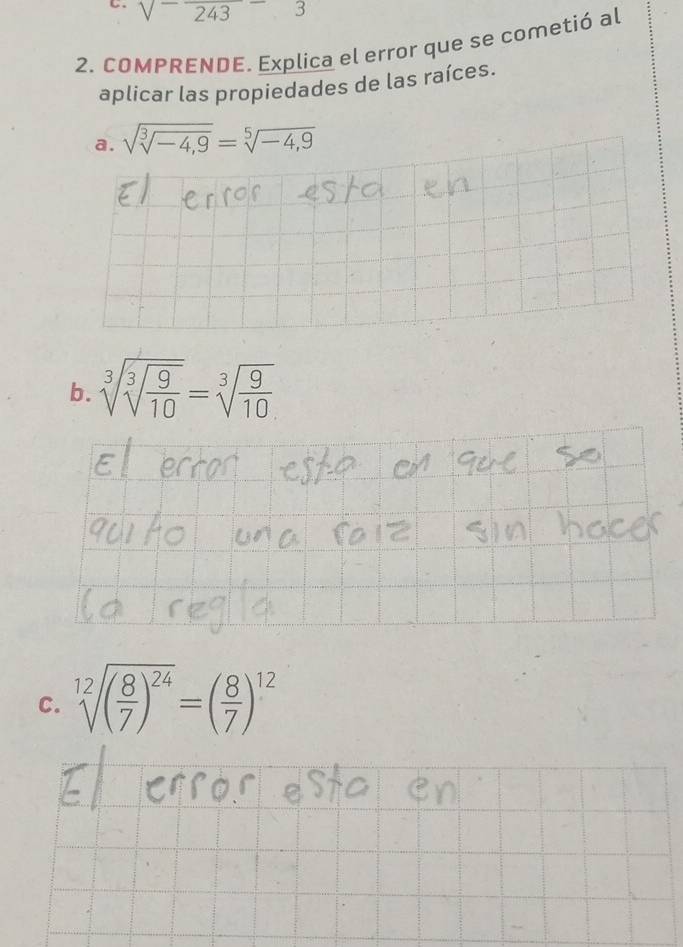 c. √ − 243 − 3
2. COMPRENDE. Explica el error que se cometió al
aplicar las propiedades de las raíces.
a. √(∛(−4,9)) = ⁵√(−4,9)
El error esta en
b. ∛(∛(9/10)) = ∛(9/10)
El error esta en que se
quito una raiz sin hacer
la regla
c. ¹²√((8/7)²⁴) = (8/7)¹²
El error esta en